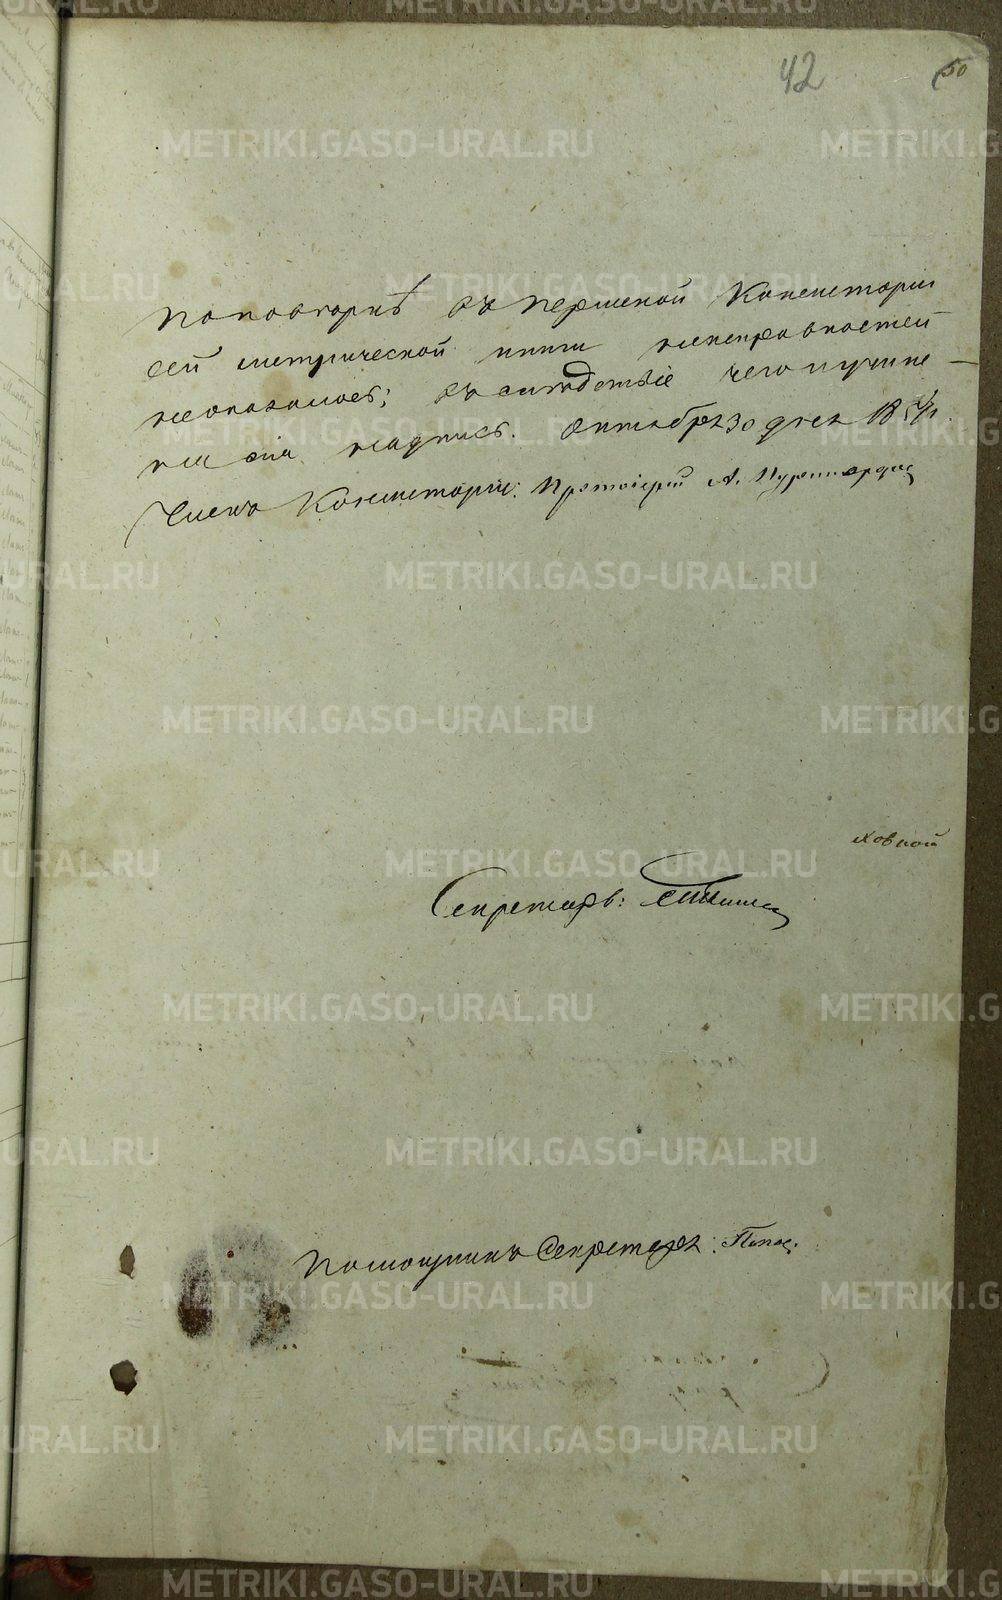 42
50
по поверкѣ въ Пермской Консисторіи
сей метрической книги неисправностей
не оказалось; въ слѣдствіе чего и учине-
на сія надпись. Октября 30 дня 185 г.
Членъ Консисторіи, Протоіерей А.
ховной
Секретарь:
Помощникъ Секретаря:
METRIKI.GASO-URAL.RU